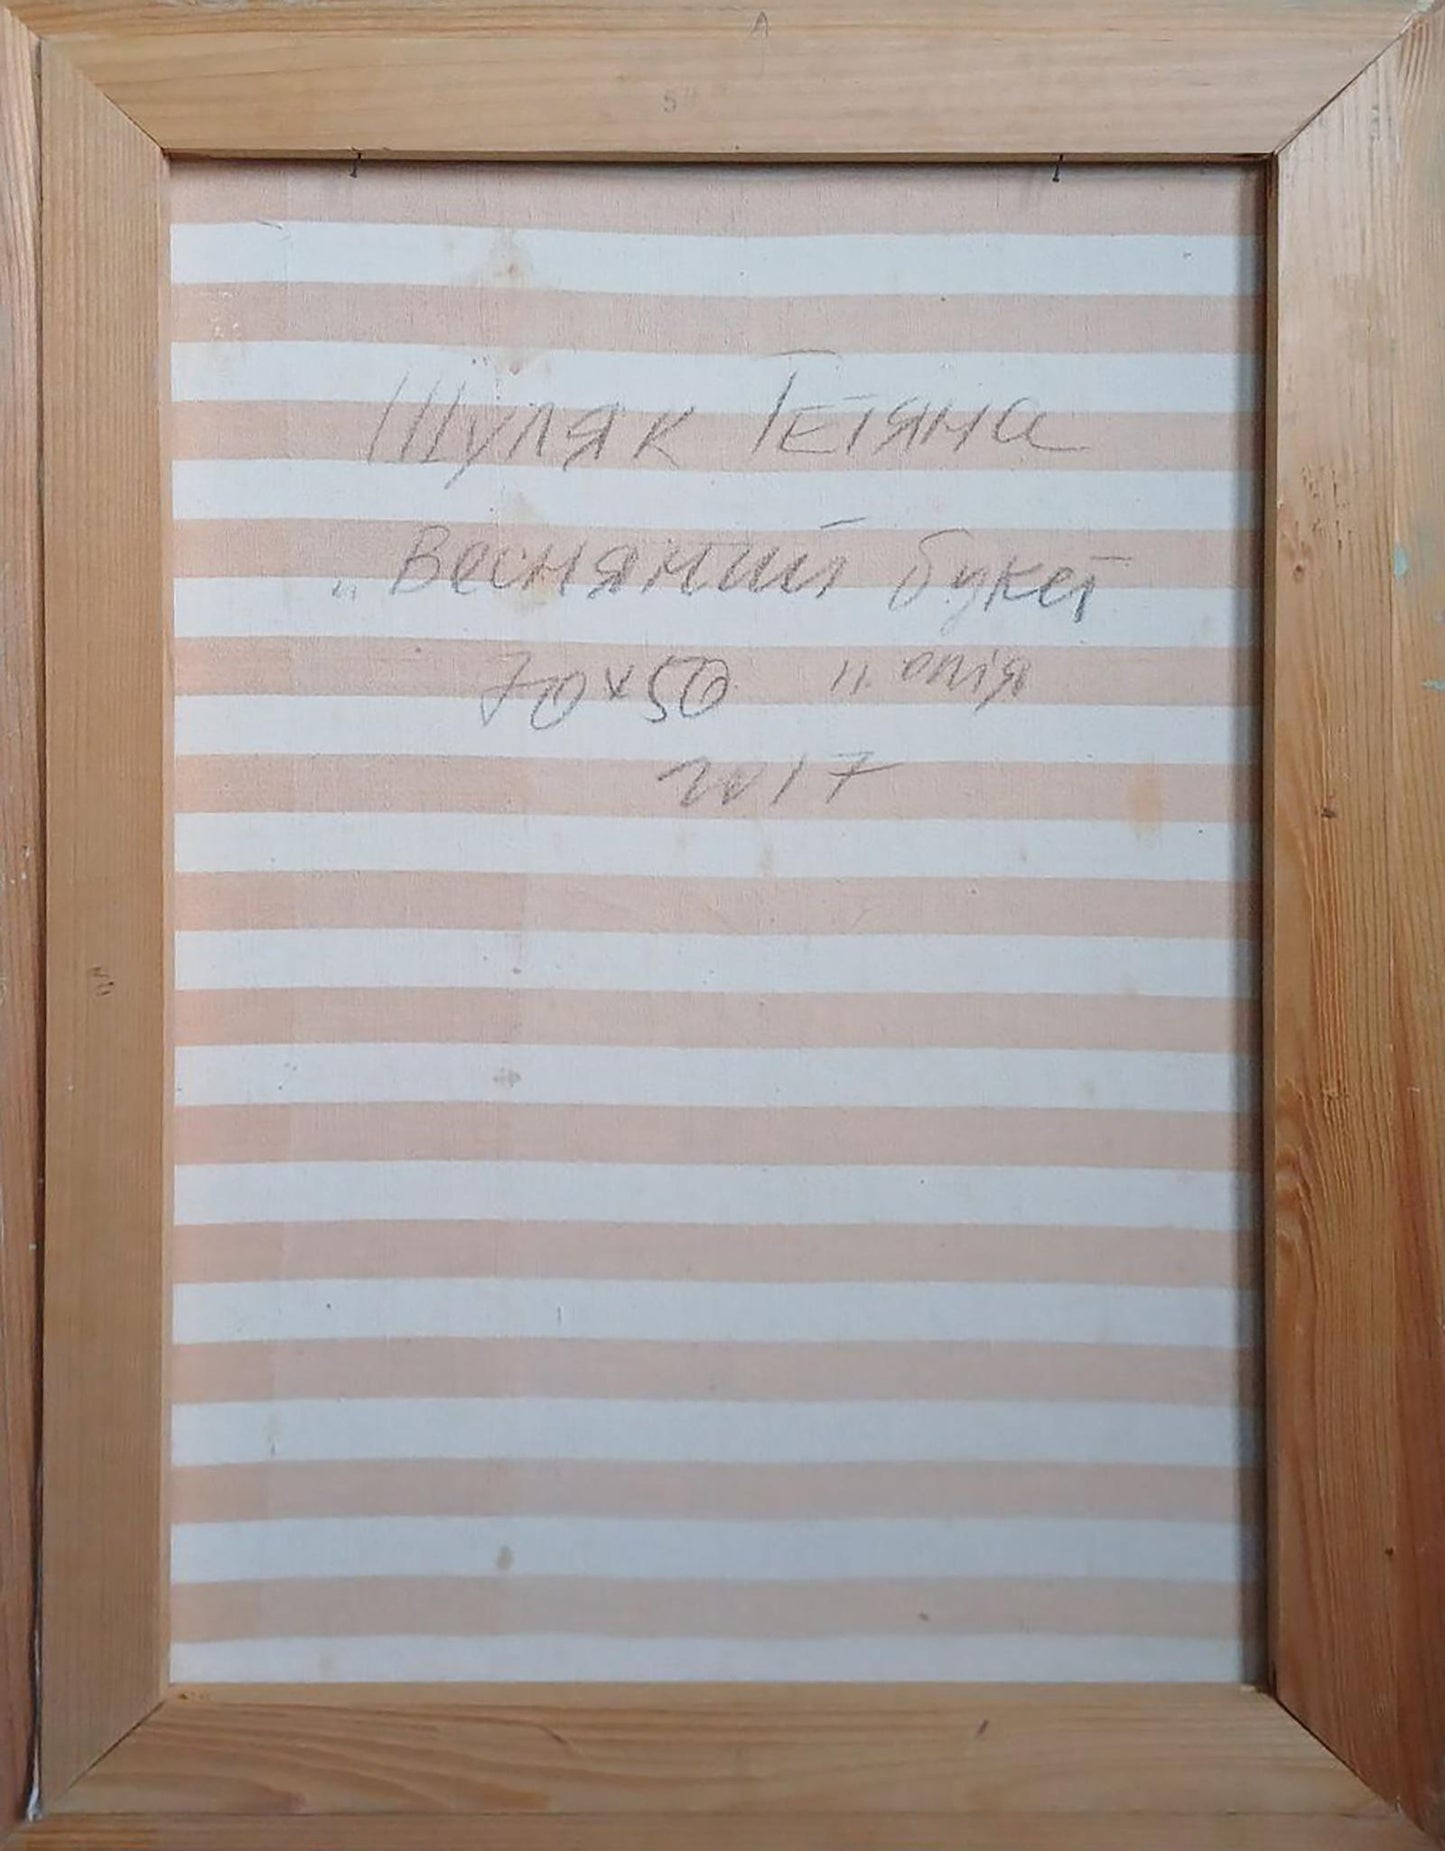 Шуляк Тетяна
„Весняний букет
70х50 п. олія
2017